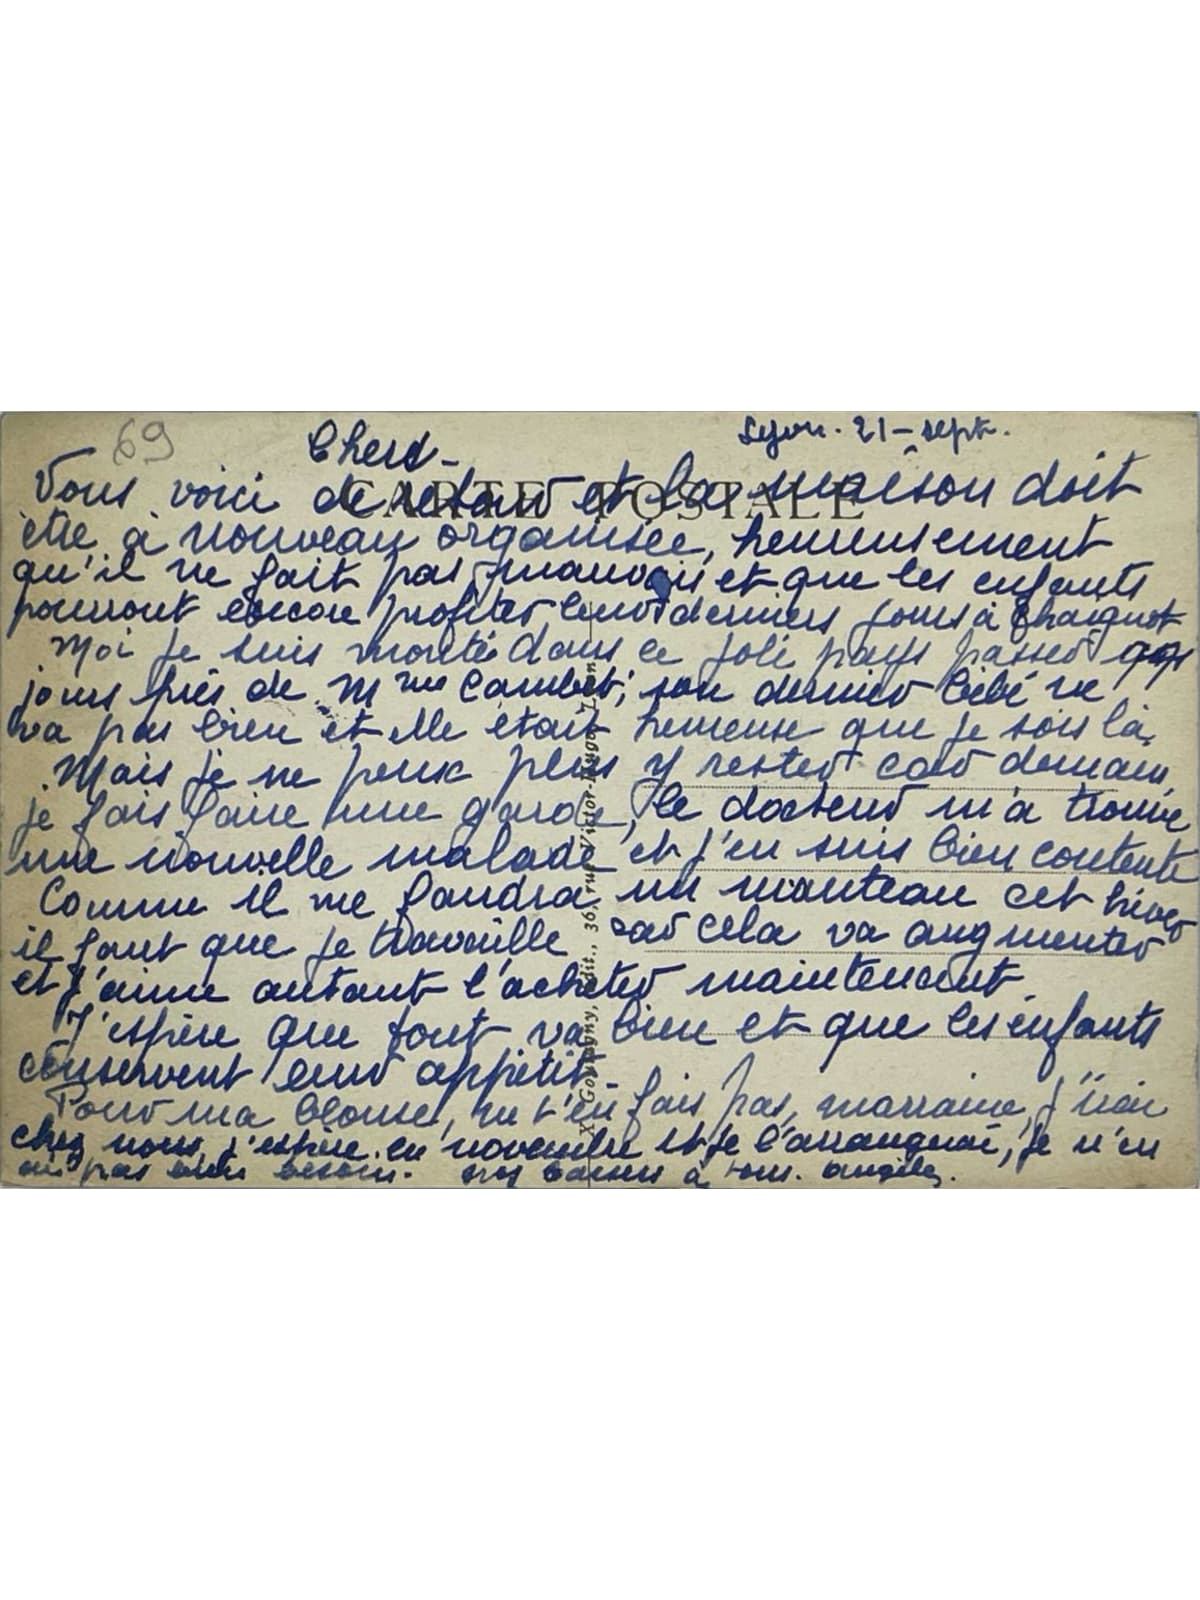 69
Lyon. 21 - sept.
Chers -
CARTE POSTALE
Vous voici de retour et la maison doit
être à nouveau organisée, heureusement
qu'il ne fait pas mauvais et que les enfants
pourront encore profiter leurs derniers jours à
Moi je suis montée dans ce joli pays passer qqs
jours près de Mme Combet; son dernier bébé ne
va pas bien et elle était heureuse que je sois là.
Mais je ne peux plus y rester car demain
je fais faire une garde, le docteur m'a trouvé
une nouvelle malade et j'en suis bien contente
Comme il me faudra un manteau cet hiver
il faut que je travaille car cela va augmenter
et j'aime autant l'acheter maintenant.
J'espère que tout va bien et que les enfants
conservent leur appétit.
Pour ma blouse, ne t'en fais pas, marraine, j'irai
chez vous, j'espère en novembre et je l'arrangerai, je n'en
ai pas bien besoin. Gros baisers à tous. Angèle.
X. Goutagny, édit., 36, rue Victor-Hugo, Lyon